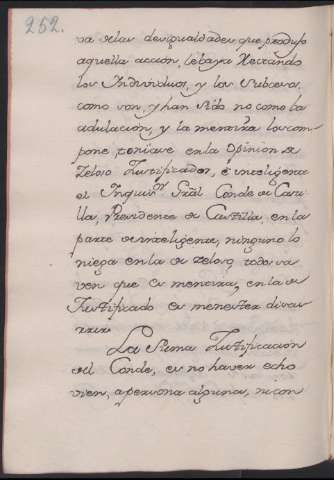 252.
va de las desigualdades que produjo
aquella accion, le haya
los Individuos, y los subcesos,
como son, y han sido no como la
adulacion, y la mentira los com
pone, tenia se en la Opinion de
Zeloso Justificador, e inteligente
el Inquisr. Gral Conde de Casti
lla, Presidente de Castilla, en la
parte de inteligente, ninguno lo
niega en la de zeloso, todos sa
ven que es mentira, en la de
Justificado es menester discu
rrir.
La Suma Justificacion
del Conde, es no haver echo
vien, a persona alguna, ni con